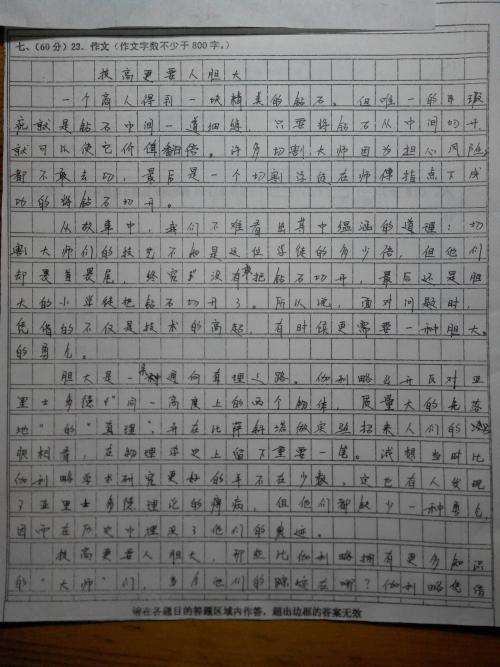 七、(60分) 23. 作文 (作文字数不少于800字。)
技高更要人胆大
一个商人得到一块精美的钻石。但唯一的瑕
疵就是钻石中间一道细缝，只要将钻石从中间切开，
就可以使它价值翻倍。许多切割大师因为担心风险，
都不敢去切，最后是一个切割学徒在师傅指点下成
功的将钻石切开。
从故事中，我们不难看出其中蕴涵的道理：切
割大师们的技艺不知是这位学徒的多少倍，但他们
却畏首畏尾，终究没有把钻石切开，最后还是胆
大的小学徒把钻石切开了。所以说，面对问题时，
凭借的不仅是技术的高超，有时候更需要一种胆大
的勇气。
胆大是一条通向真理之路。伽利略公开反对亚
里士多德"同一高度上的两个物体，质量大的先落
地"的"真理"，并在比萨斜塔做实验招来人们的
在物理学史上留下重要一笔。试想当时比
伽利略学术研究更好的并不在少数，定也有人发现
了亚里士多德理论的弊病，但他们都缺少一种勇气，
因而在历史中埋没了他们的
技高更要人胆大，那些比伽利略拥有更多知识
的"大师"们，今天他们的踪迹在哪？伽利略凭借
请在各题目的答题区域内作答，超出边框的答案无效